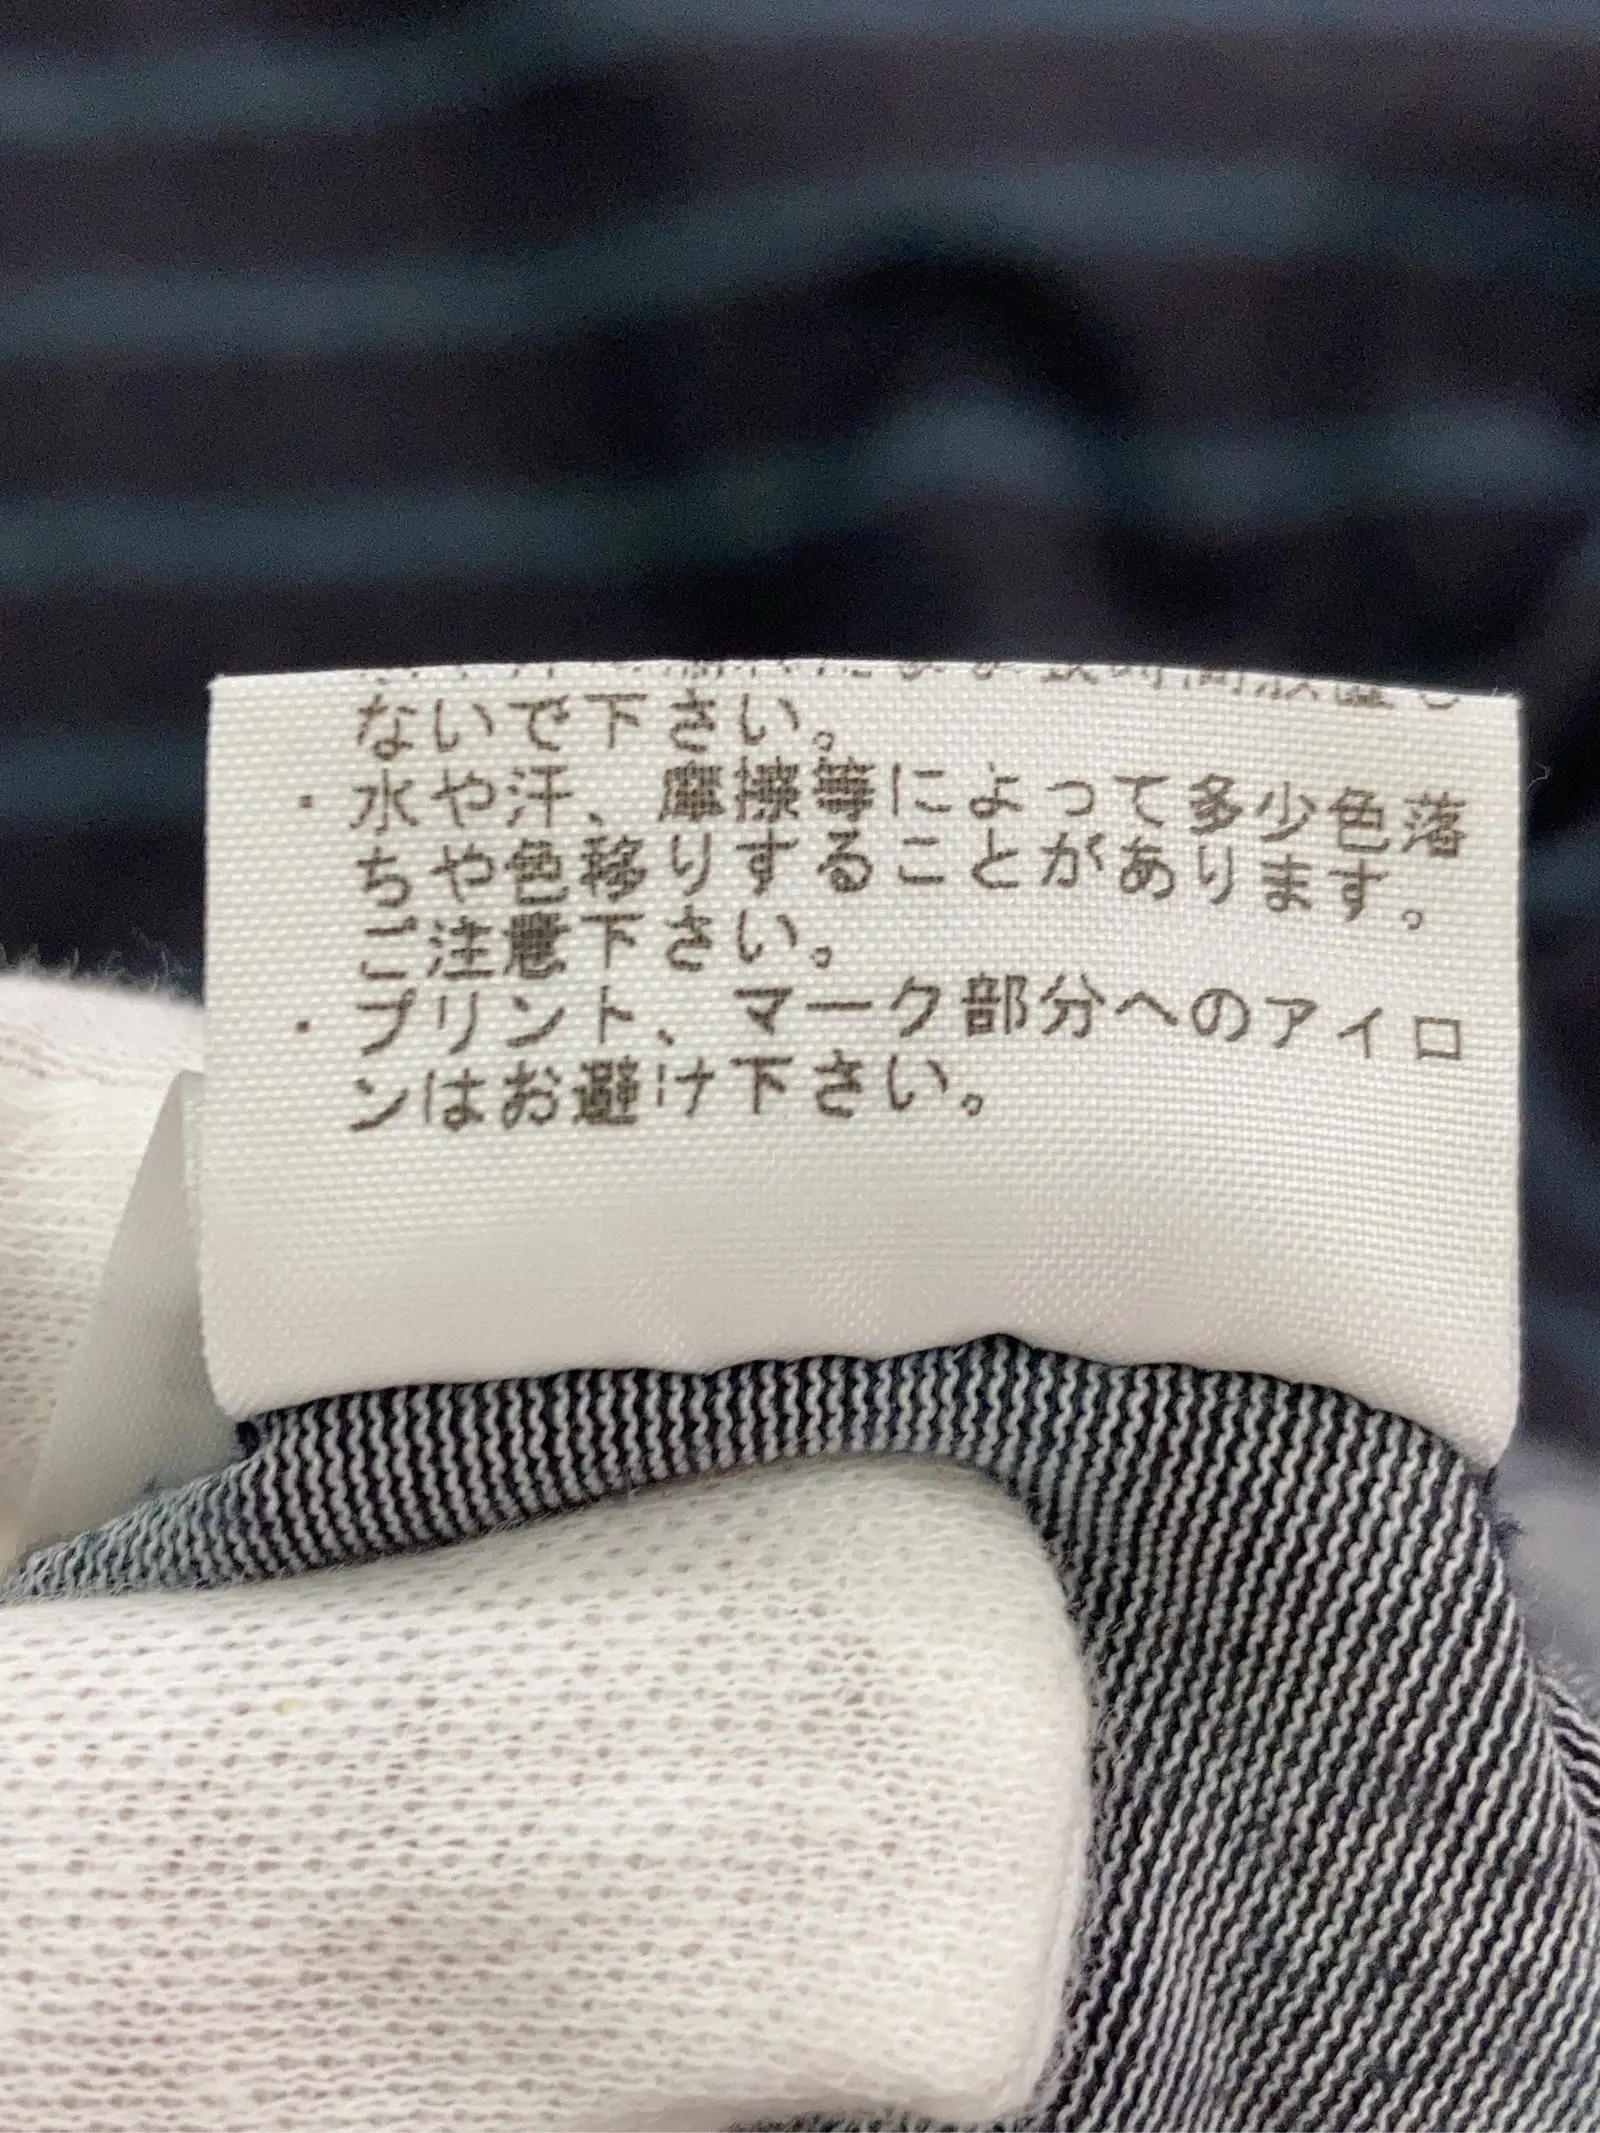 ないで下さい。
・水や汗、摩擦等によって多少色落
ちや色移りすることがあります。
ご注意下さい。
・プリント、マーク部分へのアイロ
ンはお避け下さい。